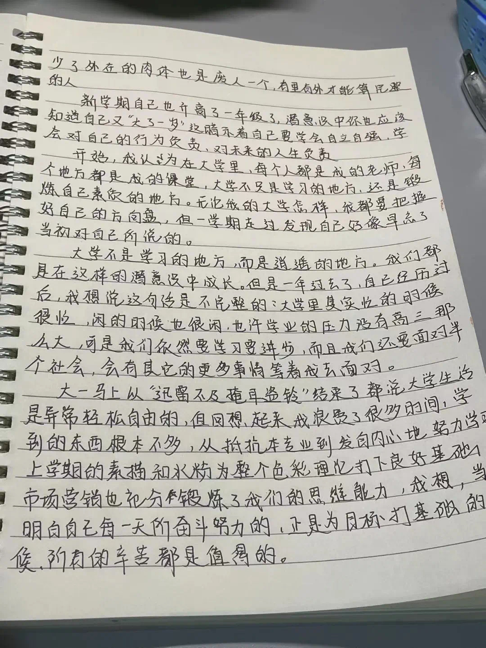 少了外在的肉体也是废人一个,有里有外才能算完整
的人
新学期自己也升高了一年级了,潜意识中你也应该
知道自己又"大了一岁"这暗示着自己要学会自立自强,学
会对自己的行为负责,对未来的人生负责
开始,我认为在大学里,每个人都是我的老师,每
个地方都是我的课堂,大学不只是学习的地方,还是锻
炼自己素质的地方。无论我的大学怎样,我都要把握
好自己的方向盘,但一学期走过发现自己好像早忘了
当初对自己所说的。
大学不是学习的地方,而是逍遥的地方。我们都
是在这样的潜意识中成长。但是一年过去了,自己经历过
后,我想说这句话是不完整的:大学里其实忙的时候
很忙,闲的时候也很闲,也许学业的压力没有高三那
么大,可是我们依然要学习要进步,而且我们还要面对半
个社会,会有其它的更多事情等着我去面对。
大一马上从"迅雷不及掩耳盗铃"结束了都说大学生活
是异常轻松自由的,但回想起来我浪费了很多时间,学
到的东西根本不多,从抵抗本专业到发自内心地努力学习
上学期的素描和水粉为整个色彩理论打下良好基础,
市场营销也充分锻炼了我们的思维能力,我想,当
明白自己每一天所奋斗努力的,正是为目标打基础的
候,所有的辛苦都是值得的。